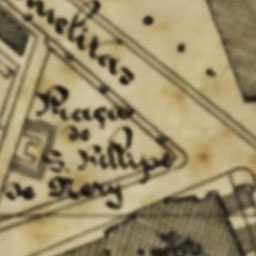 melitas
Praça
de
S. Fillipe
de Nery